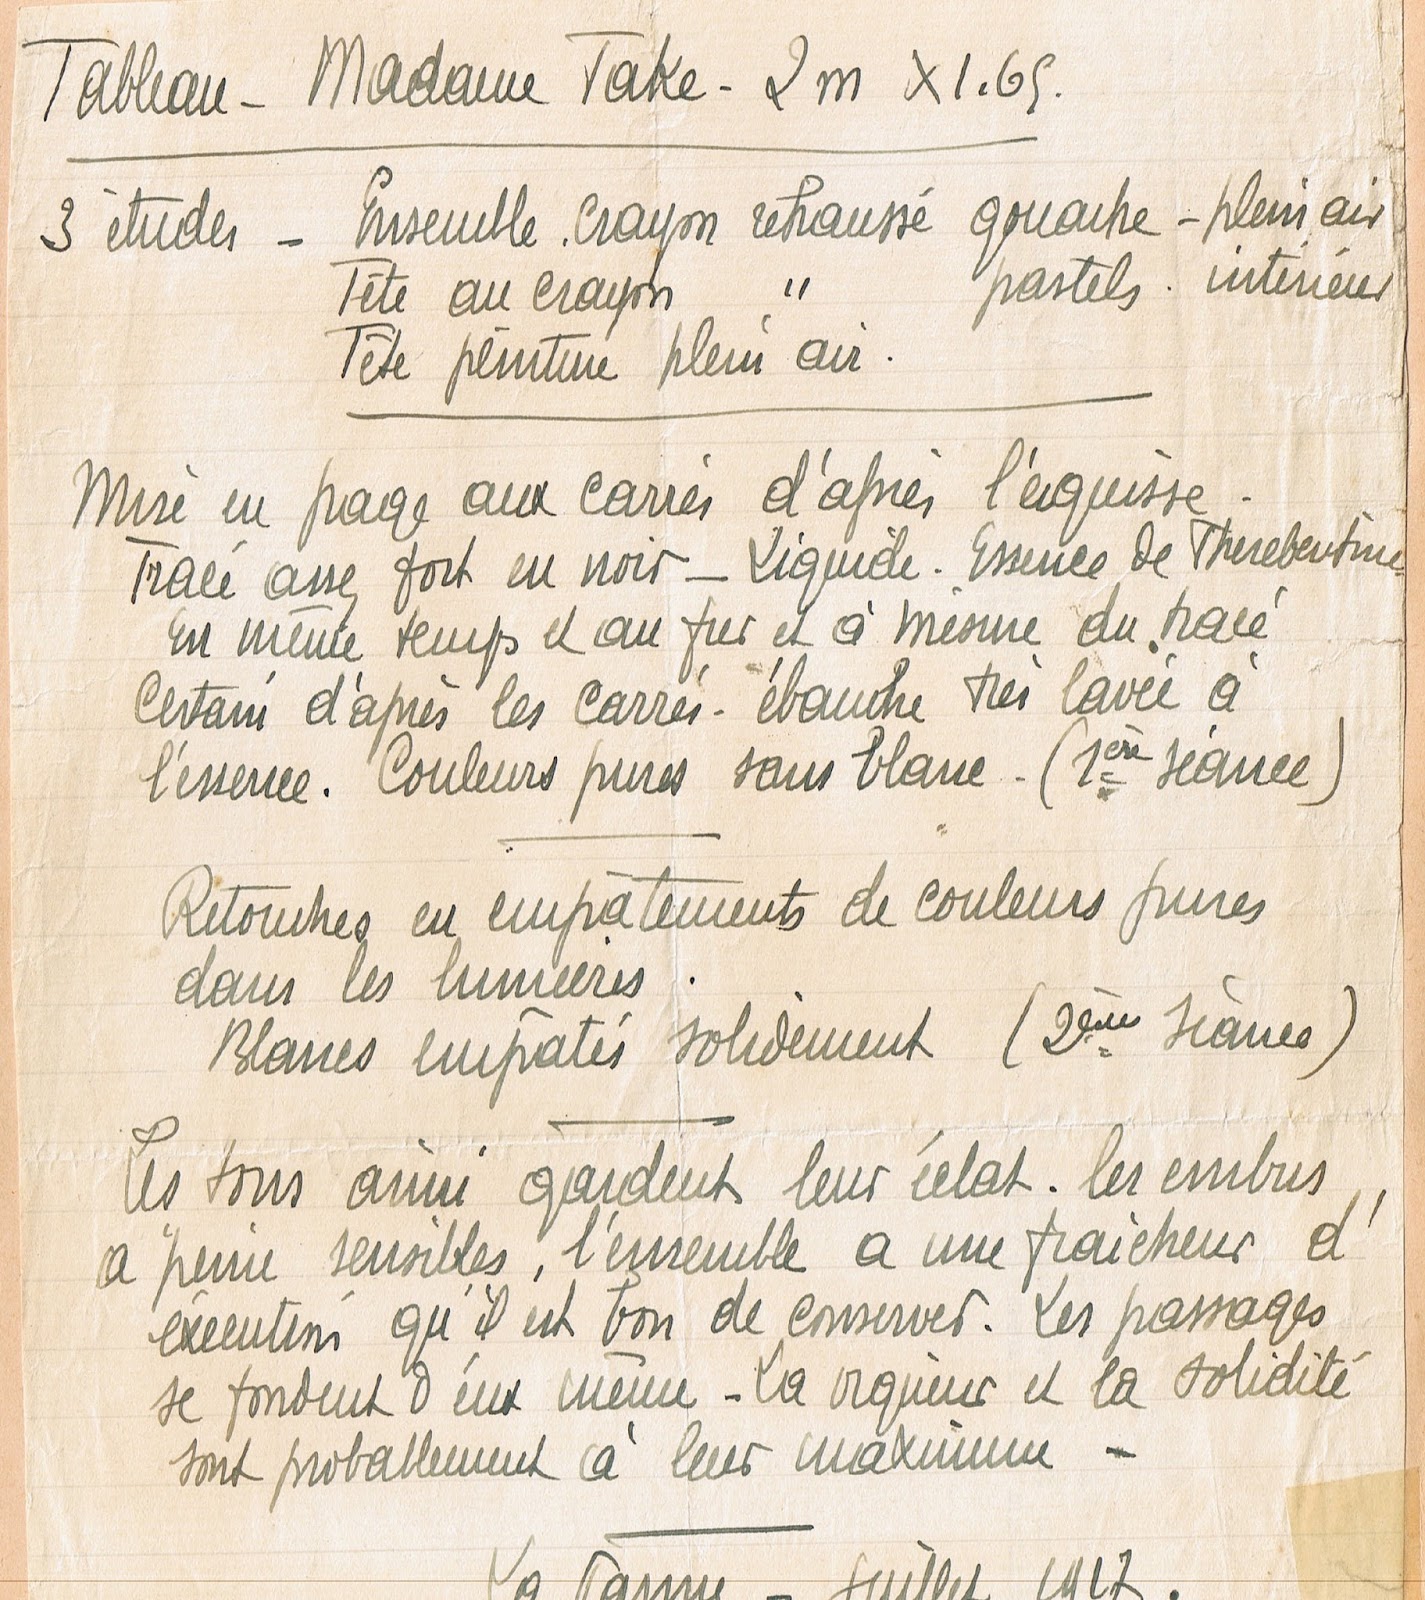 Tableau - Madame Take - 2 m X 1.65.
3 études - Ensemble . crayon rehaussé gouache - plein air
Tête au crayon " pastels . intérieur
Tête peinture plein air .
Mise en page aux carrés d'après l'esquisse .
Tracé assez fort en noir - Liquide . Essence de Therebentine
En même temps et au fur et à mesure du tracé
Certain d'après les carrés - ébauche très lavée à
l'essence . Couleurs pures sans blanc - (1ère séance)
Retouches en empâtements de couleurs pures
dans les lumières .
Blancs empâtés solidement (2ème séance)
Les tons ainsi gardent leur éclat . les embus
a peine sensibles , l'ensemble a une fraicheur d'
éxécution qu'il est bon de conserver . Les passages
se fondent d'eux même - La vigueur et la solidité
sont probablement à leur maximum -
La - Juillet 1917 .